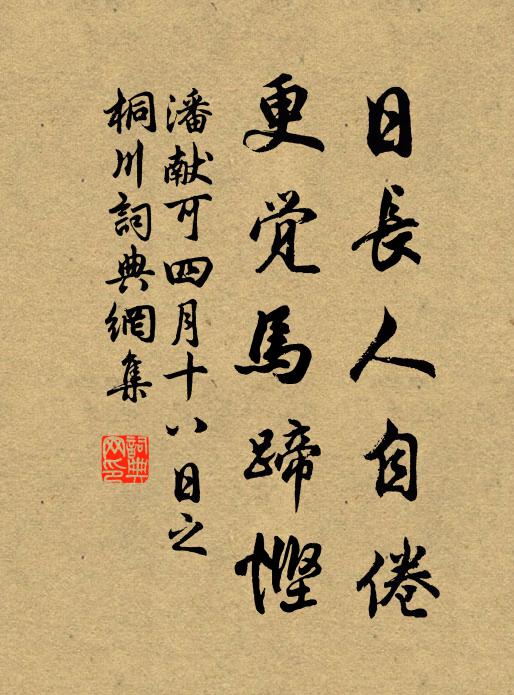 日長人自倦
更覚馬蹄慳
潘献可四月十八日之
桐川詞典網集
詞典网印